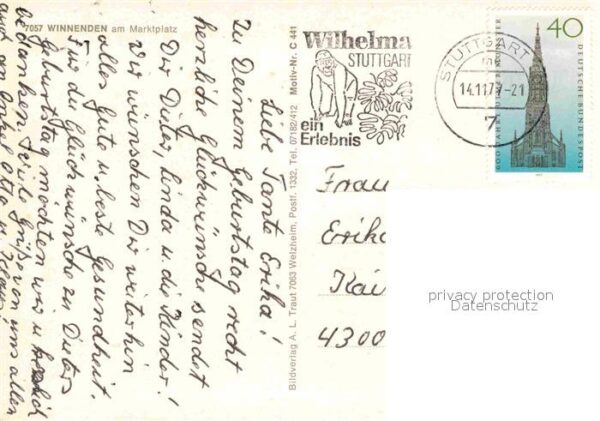 7057 WINNENDEN am Marktplatz
Liebe Tante Erika!
Zu Deinem Geburtstag recht
herzliche Glückwünsche sendet
Dir Dieter, Linda u. die Kinder!
Wir wünschen Dir weiterhin
alles Gute u. beste Gesundheit.
Für die Glückwünsche zu Dieters
Geburtstag möchten wir uns
bedanken. Viele Grüße von uns allen
Bildverlag A. L. Traut 7063 Welzheim, Postf. 1332, Tel. 07182/412 Motiv-Nr. C 441
Wilhelma
STUTTGART
ein
Erlebnis
STUTTGART
14.11.77-21
7
40
DEUTSCHE BUNDESPOST
600 JAHRE ULMER MÜNSTER
1977
Frau
Erika
Kai
4300
privacy protection
Datenschutz